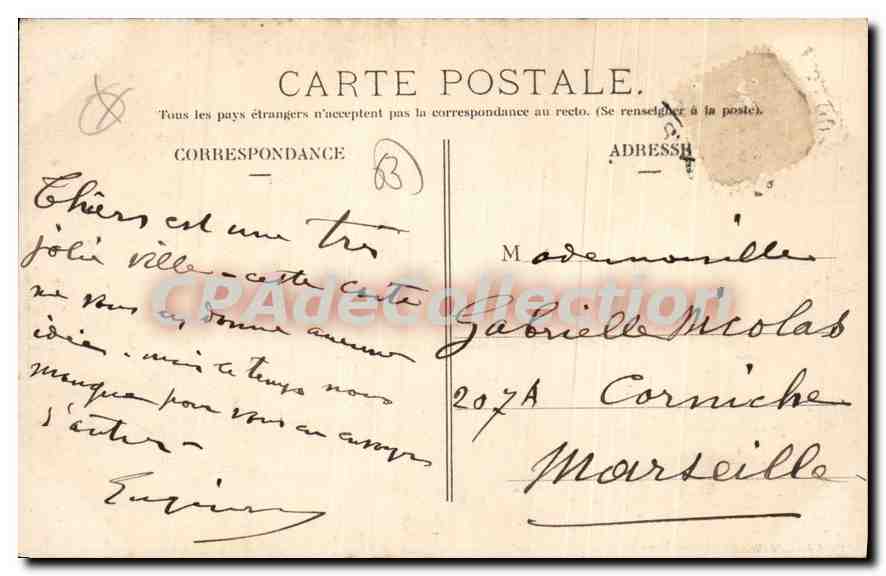 CARTE POSTALE.
Tous les pays étrangers n'acceptent pas la correspondance au recto. (Se renseigner à la poste).
CORRESPONDANCE
B
ADRESSE
Thiers est une très
jolie ville - cette carte
ne vous en donne aucune
idée. mais le temps nous
manque pour vous en envoyer
d'autres -
Mademoiselle
Gabrielle Nicolas
207A Corniche
Marseille
CPAdeCollection